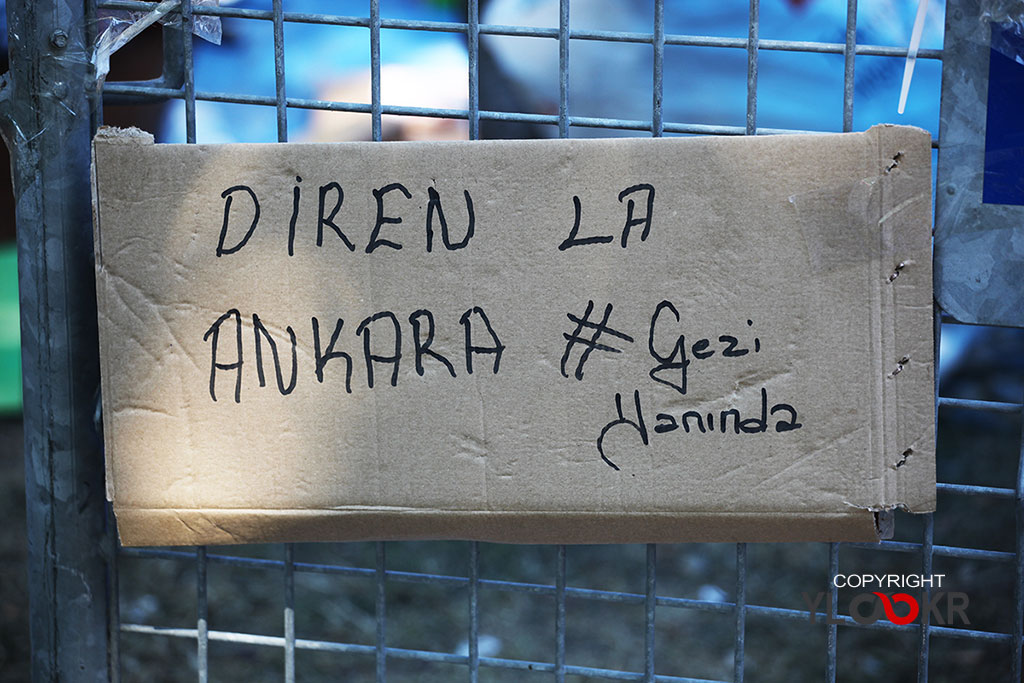 DİREN LA
ANKARA #Gezi
Yanında
COPYRIGHT
YLOOKR